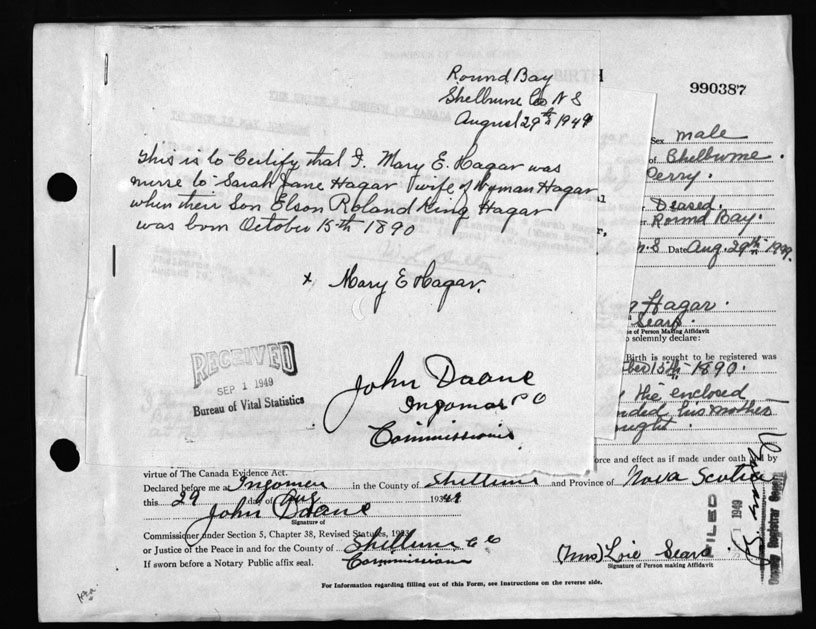 Round Bay
Shelburne Co N S
August 29th 1949
This is to Certify that I. Mary E. Hagar was
nurse to Sarah Jane Hagar wife of Wyman Hagar
when their Son Elson Roland King Hagar
was born October 15th 1890
x Mary E Hagar.
RECEIVED
SEP 1 1949
Bureau of Vital Statistics
John Doane
Ingomar P O
Commissioner
BIRTH
990387
Sex male
of Shelburne.
Perry.
Deased.
Round Bay.
N.S Date Aug. 29th 1949.
Hagar.
Sears.
of Person Making Affidavit
solemnly declare:
Birth is sought to be registered was
15th 1890.
the enclosed
his mother
force and effect as if made under oath and by
virtue of The Canada Evidence Act.
Declared before me at Ingomar in the County of Shelburne and Province of Nova Scotia
this 29 day of Aug 1949
John Doane
Signature of
Commissioner under Section 5, Chapter 38, Revised Statutes, 1923
or Justice of the Peace in and for the County of Shelburne Co
If sworn before a Notary Public affix seal. Commissioner
(Mrs) Loie Sears
Signature of Person making Affidavit
FILED
1 1949
Deputy Registrar General
For Information regarding filling out of this Form, see Instructions on the reverse side.